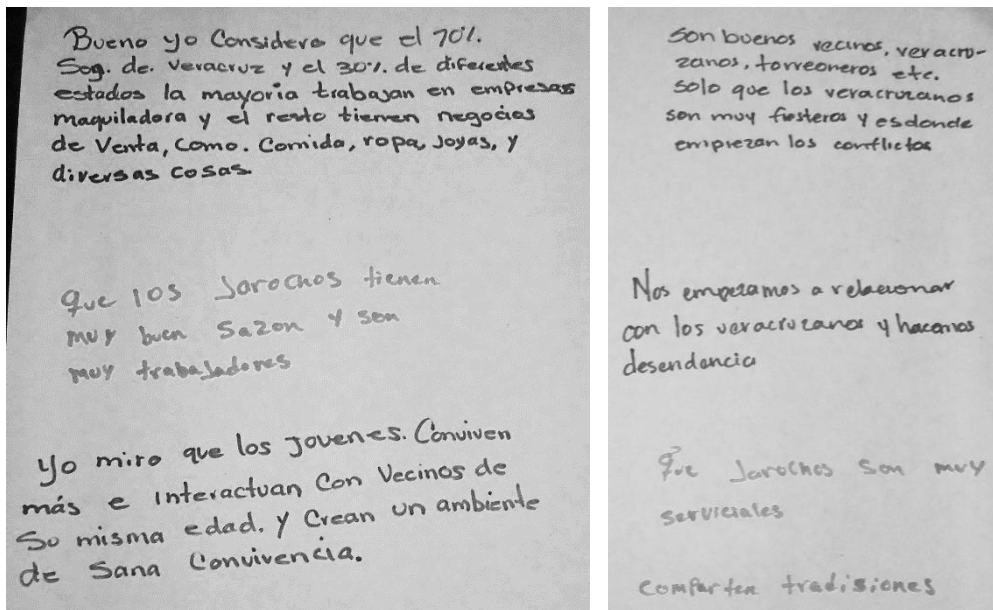 Bueno yo Considero que el 70%.
Sog. de. Veracruz y el 30%. de diferentes
estados la mayoria trabajan en empresas
maquiladora y el resto tienen negocios
de Venta, Como. Comida, ropa, Joyas, y
diversas cosas.
que los Jarochos tienen
muy buen Sazon y son
muy trabaJadores
Yo miro que los Jovenes. Conviven
más e Interactuan Con Vecinos de
Su misma edad. y Crean un ambiente
de Sana Convivencia.
Son buenos vecinos, veracru-
zanos, torreoneros etc.
solo que los veracruzanos
son muy fiesteros y esdonde
empiezan los conflictos
Nos empezamos a relacionar
con los veracruzanos y hacemos
desendancia
Que Jarochos son muy
serviciales
comparten tradisiones